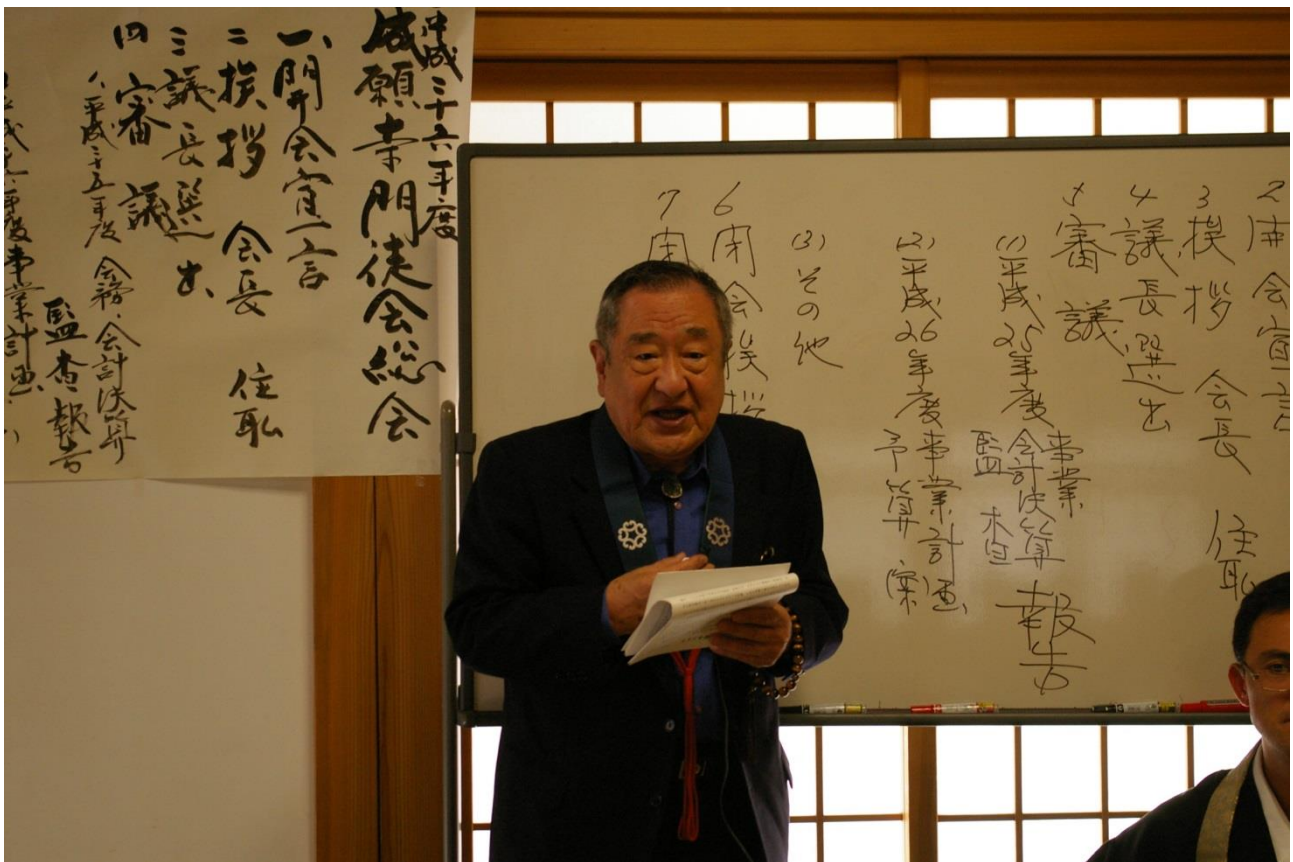 平成二十六年度
成願寺門徒会総会
一、開会宣言
二 挨拶 会長 住職
三 議長選出
四 審議
1、平成二十五年度 会務、会計決算
監査報告
2 開会宣言
3 挨拶 会長 住職
4 議長選出
5 審議
(1) 平成25年度 事業
会計決算 報告
監査
(2) 平成26年度 事業計画
予算 (案)
(3) その他
6 閉会挨拶
7 閉